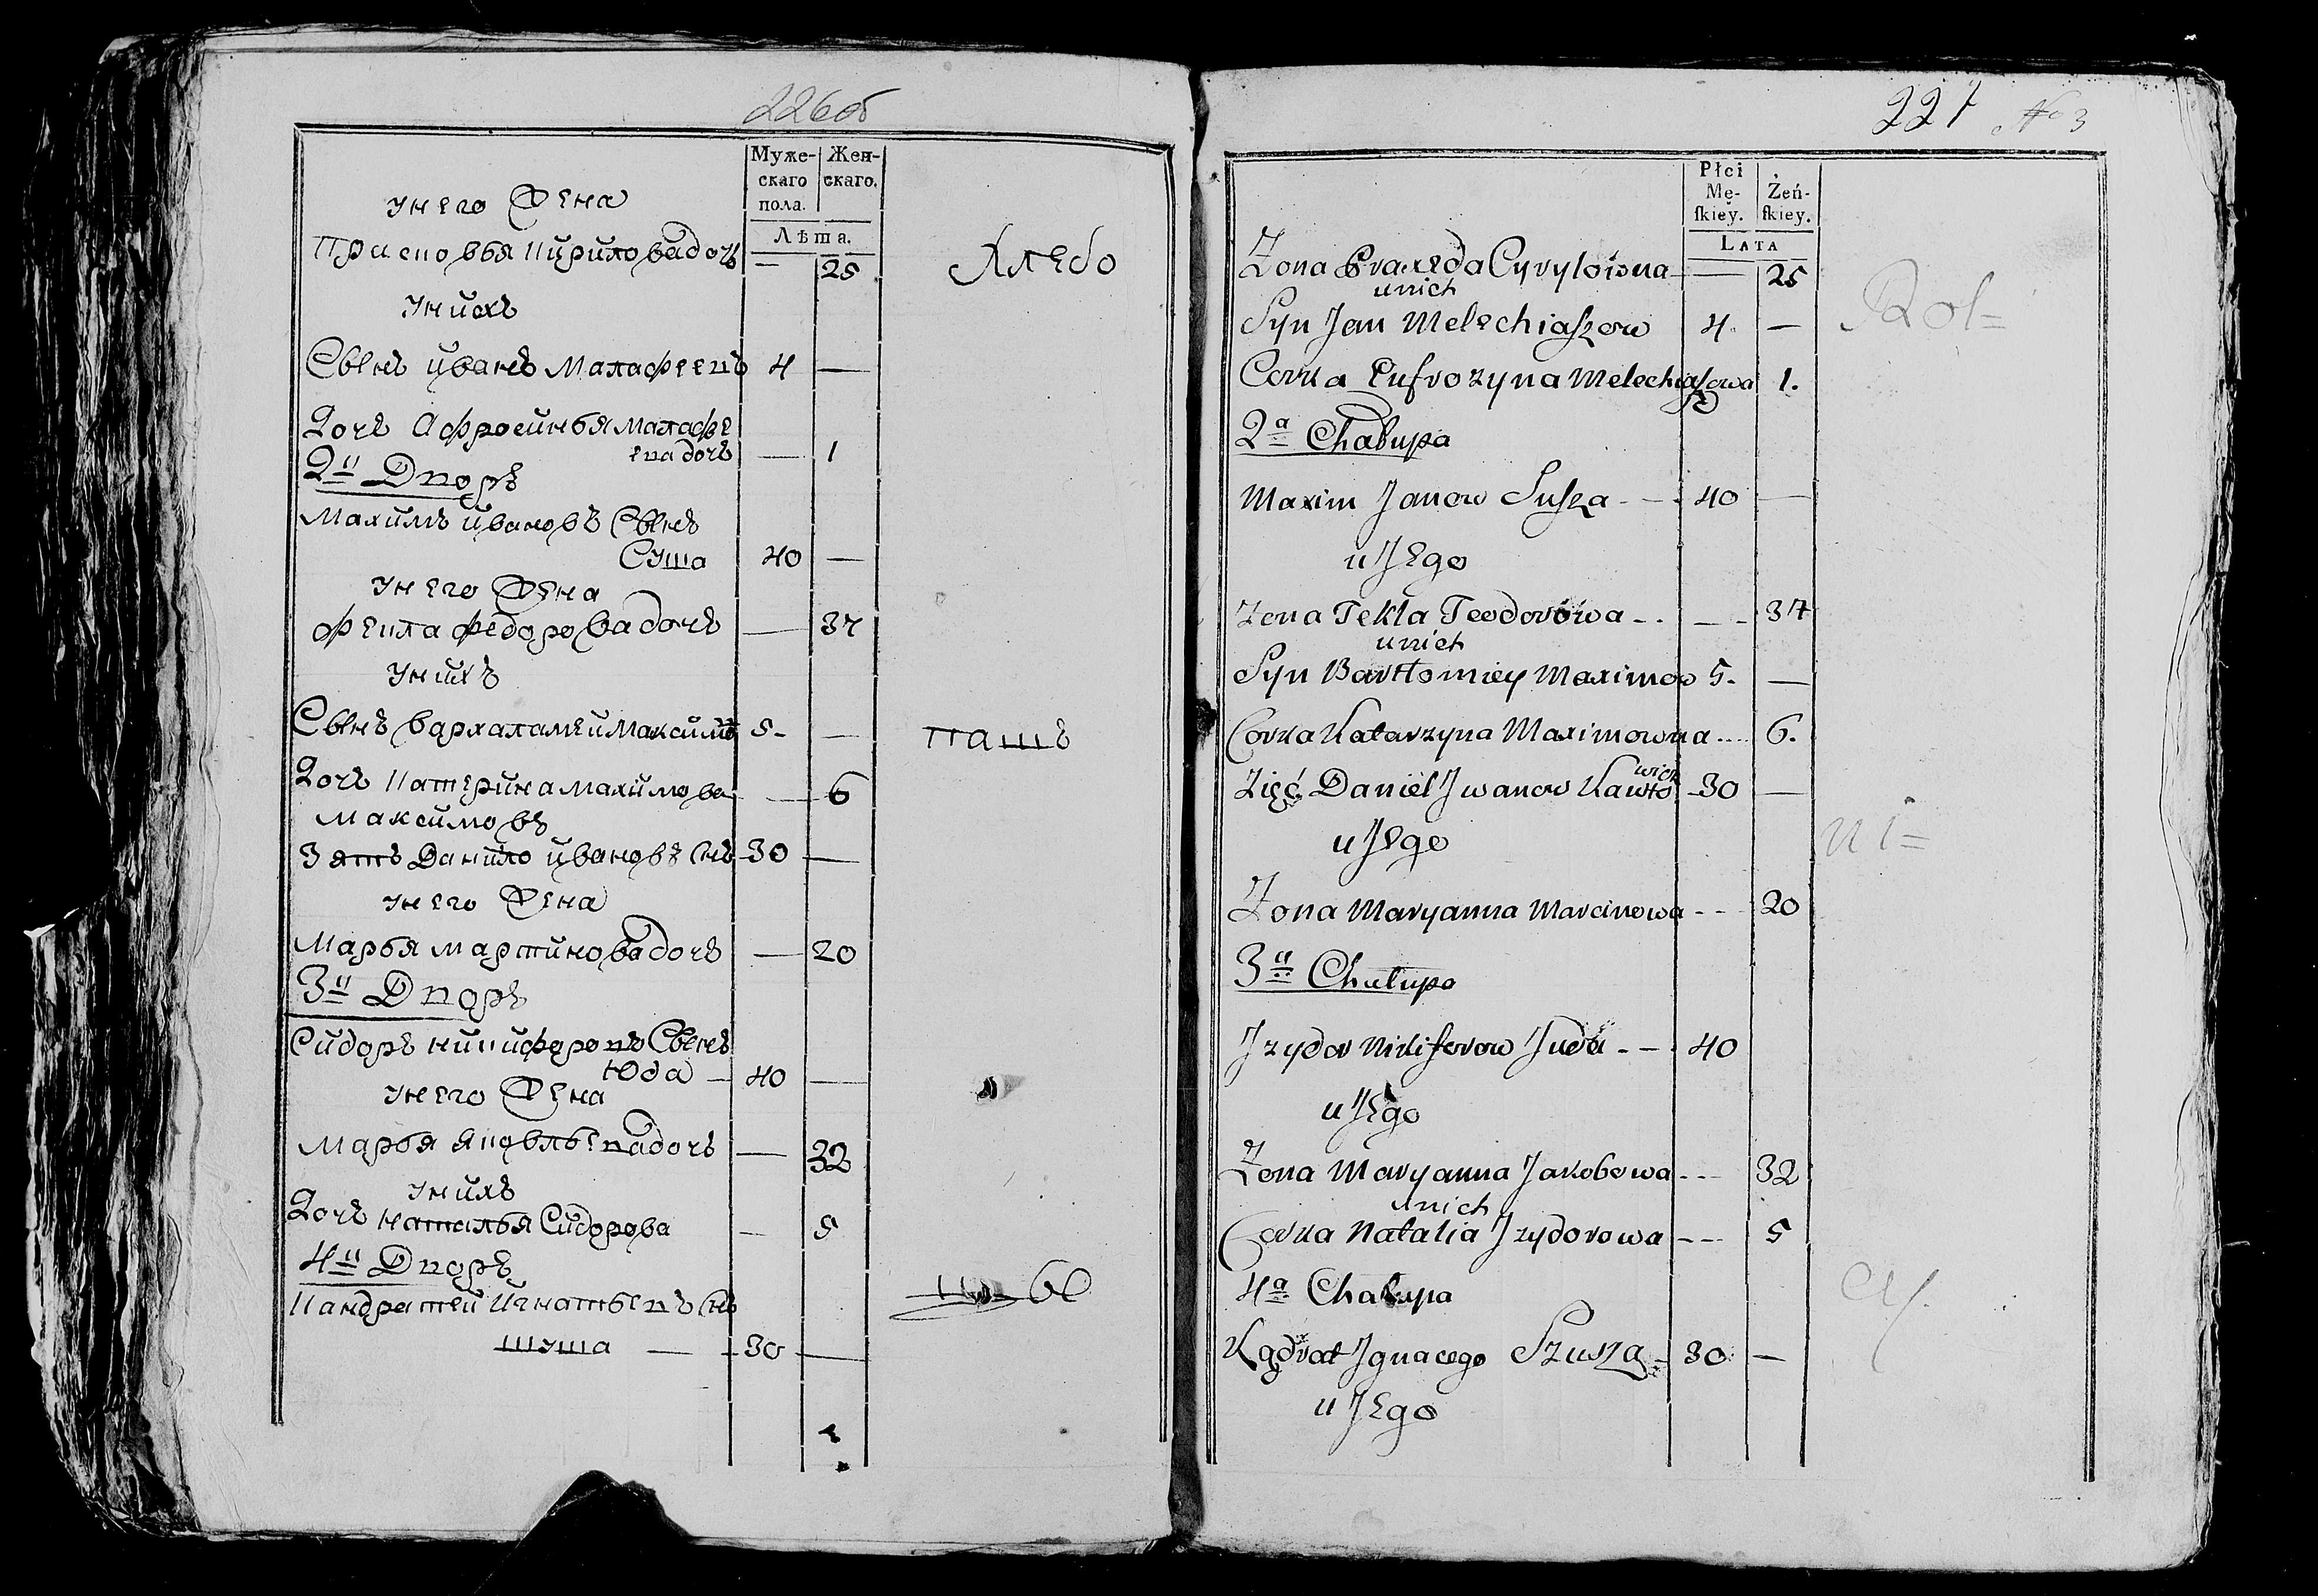 226об
Муже-
скаго
пола.
Жен-
скаго.
Лѣта.
у него жена
Присковья Кирилова дочь — 25
Хлебо
у нихъ
Сынъ иванъ Малафеевъ 4 —
Дочь Афросинья Малафе
ева дочь — 1
2й Дворъ
Махимъ ивановъ Сынъ
Суша 40 —
у него жена
Фекла Федорова дочь — 37
у нихъ
Сынъ Вархаламей Максимо 5 - —
пашъ
Дочь Катерина Махимова — 6
Максимовъ
Зять Данило ивановъ Снъ 30 —
у него жена
Марья мартинова дочь — 20
3й Дворъ
Сидоръ никифоровъ Сынъ
Юда — 40 —
у него жена
Марья Яковльева дочь — 32
у нихъ
Дочь наталья Сидорова — 5
4й Дворъ
Кандратей Игнатьевъ Снъ
шуша — 30 —
221 No 3
Płci
Mę-
ſkiey.
Żeń-
ſkiey.
Lata
Zona Praxeda Cyrylowna — 25
u nich
Rol=
Syn Jan Melechiaszow 4 —
Corka Eufrozyna Melechiaszowa 1.
2a Chałupa
Maxim Janow Susza - — 40 —
u Jego
Zona Tekla Teodorówa - . — - 37
u nich
Syn Bartłomiey Maximow 5 - —
Corka Katarzyna Maximowna .... 6.
Zięć Daniel Jwanow Kawło
wicz - 30 —
u Jego
ni=
Zona Maryanna Marcinowa - - - 20
3a Chałupa
Jzydor Nikiforow Juda - — 40
u Jego
Zona Maryanna Jakobowa - - - 32
u nich
Corka Natalia Jzydorowa - - - 5
4a Chałupa
Kądrat Jgnacego Szusza - 30 —
u Jego